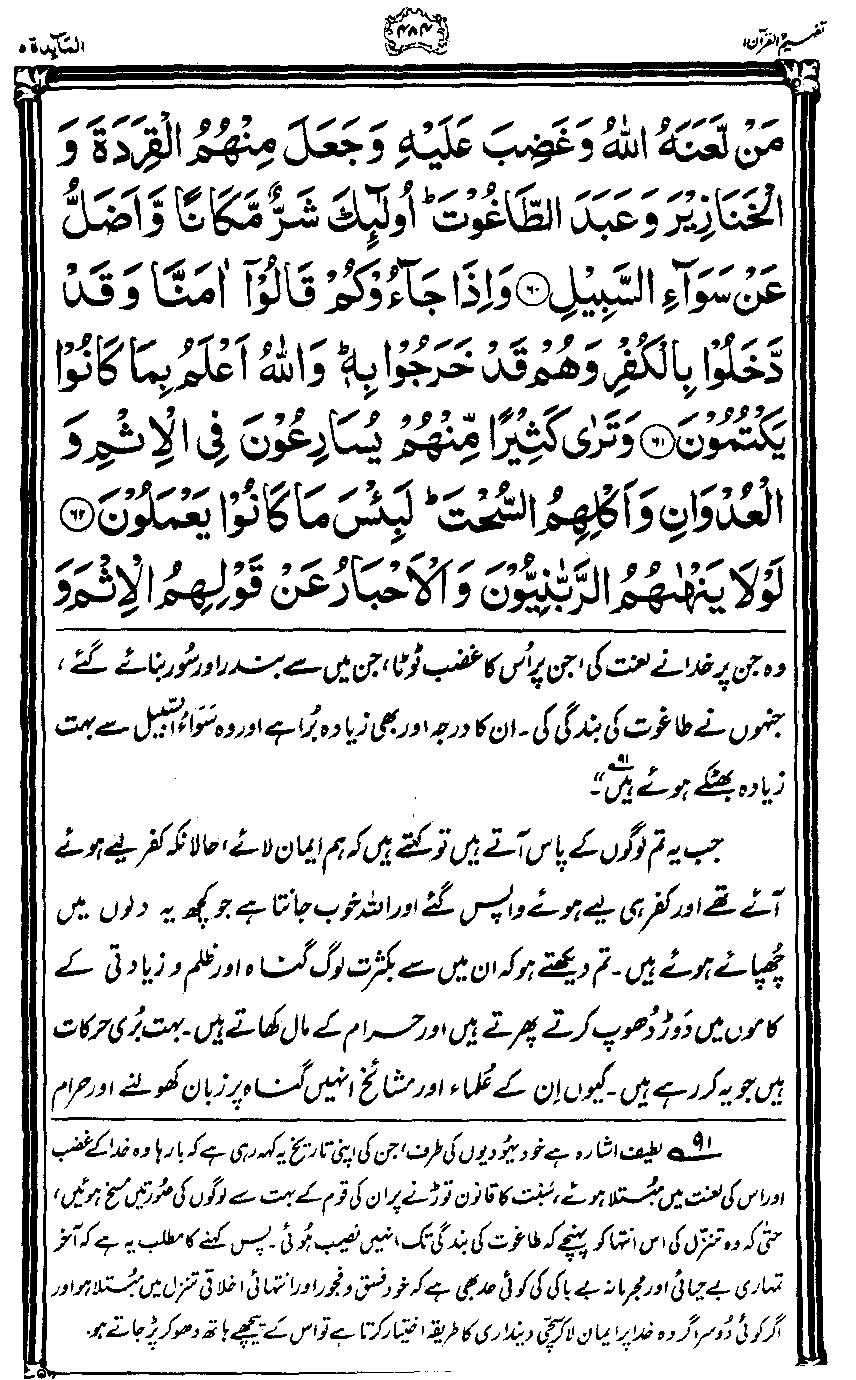 تفہیم القرآن ۱
۴۸۴
المآئدۃ ۵
مَنْ لَّعَنَهُ اللّٰهُ وَغَضِبَ عَلَيْهِ وَجَعَلَ مِنْهُمُ الْقِرَدَةَ وَ
الْخَنَازِيْرَ وَعَبَدَ الطَّاغُوْتَ ؕ اُولٰٓئِكَ شَرٌّ مَّكَانًا وَّاَضَلُّ
عَنْ سَوَآءِ السَّبِيْلِ ۶۰ وَاِذَا جَآءُوْكُمْ قَالُوْٓا اٰمَنَّا وَقَدْ
دَّخَلُوْا بِالْكُفْرِ وَهُمْ قَدْ خَرَجُوْا بِهٖ ؕ وَاللّٰهُ اَعْلَمُ بِمَا كَانُوْا
يَكْتُمُوْنَ ۶۱ وَتَرٰى كَثِيْرًا مِّنْهُمْ يُسَارِعُوْنَ فِى الْاِثْمِ وَ
الْعُدْوَانِ وَاَكْلِهِمُ السُّحْتَ ؕ لَبِئْسَ مَا كَانُوْا يَعْمَلُوْنَ ۶۲
لَوْلَا يَنْهٰىهُمُ الرَّبّٰنِيُّوْنَ وَالْاَحْبَارُ عَنْ قَوْلِهِمُ الْاِثْمَ وَ
وہ جن پر خدا نے لعنت کی، جن پر اُس کا غضب ٹوٹا، جن میں سے بندر اور سُور بنائے گئے،
جنہوں نے طاغوت کی بندگی کی۔ ان کا درجہ اور بھی زیادہ بُرا ہے اور وہ سَوَاءُ السّبیل سے بہت
زیادہ بھٹکے ہوئے ہیں۹۱"
جب یہ تم لوگوں کے پاس آتے ہیں تو کہتے ہیں کہ ہم ایمان لائے، حالانکہ کفر لیے ہوئے
آئے تھے اور کفر ہی لیے ہوئے واپس گئے اور اللہ خوب جانتا ہے جو کچھ یہ دلوں میں
چُھپائے ہوئے ہیں۔ تم دیکھتے ہو کہ ان میں سے بکثرت لوگ گناہ اور ظلم و زیادتی کے
کاموں میں دَوڑ دُھوپ کرتے پھرتے ہیں اور حرام کے مال کھاتے ہیں۔ بہت بُری حرکات
ہیں جو یہ کر رہے ہیں۔ کیوں اِن کے عُلماء اور مشائخ انہیں گناہ پر زبان کھولنے اور حرام
۹۱ لطیف اشارہ ہے خود یہودیوں کی طرف، جن کی اپنی تاریخ یہ کہہ رہی ہے کہ بارہا وہ خدا کے غضب
اور اس کی لعنت میں مُبتلا ہوئے، سَبْت کا قانون توڑنے پر ان کی قوم کے بہت سے لوگوں کی صُورتیں مسخ ہوئیں،
حتیٰ کہ وہ تنزّل کی اس انتہا کو پہنچے کہ طاغوت کی بندگی تک انہیں نصیب ہُوئی۔ پس کہنے کا مطلب یہ ہے کہ آخر
تمہاری بے حیائی اور مجرمانہ بے باکی کی کوئی حد بھی ہے کہ خود فسق و فجور اور انتہائی اخلاقی تنزل میں مُبتلا ہو اور
اگر کوئی دُوسرا گروہ خدا پر ایمان لا کر سچّی دینداری کا طریقہ اختیار کرتا ہے تو اس کے پیچھے ہاتھ دھو کر پڑ جاتے ہو۔